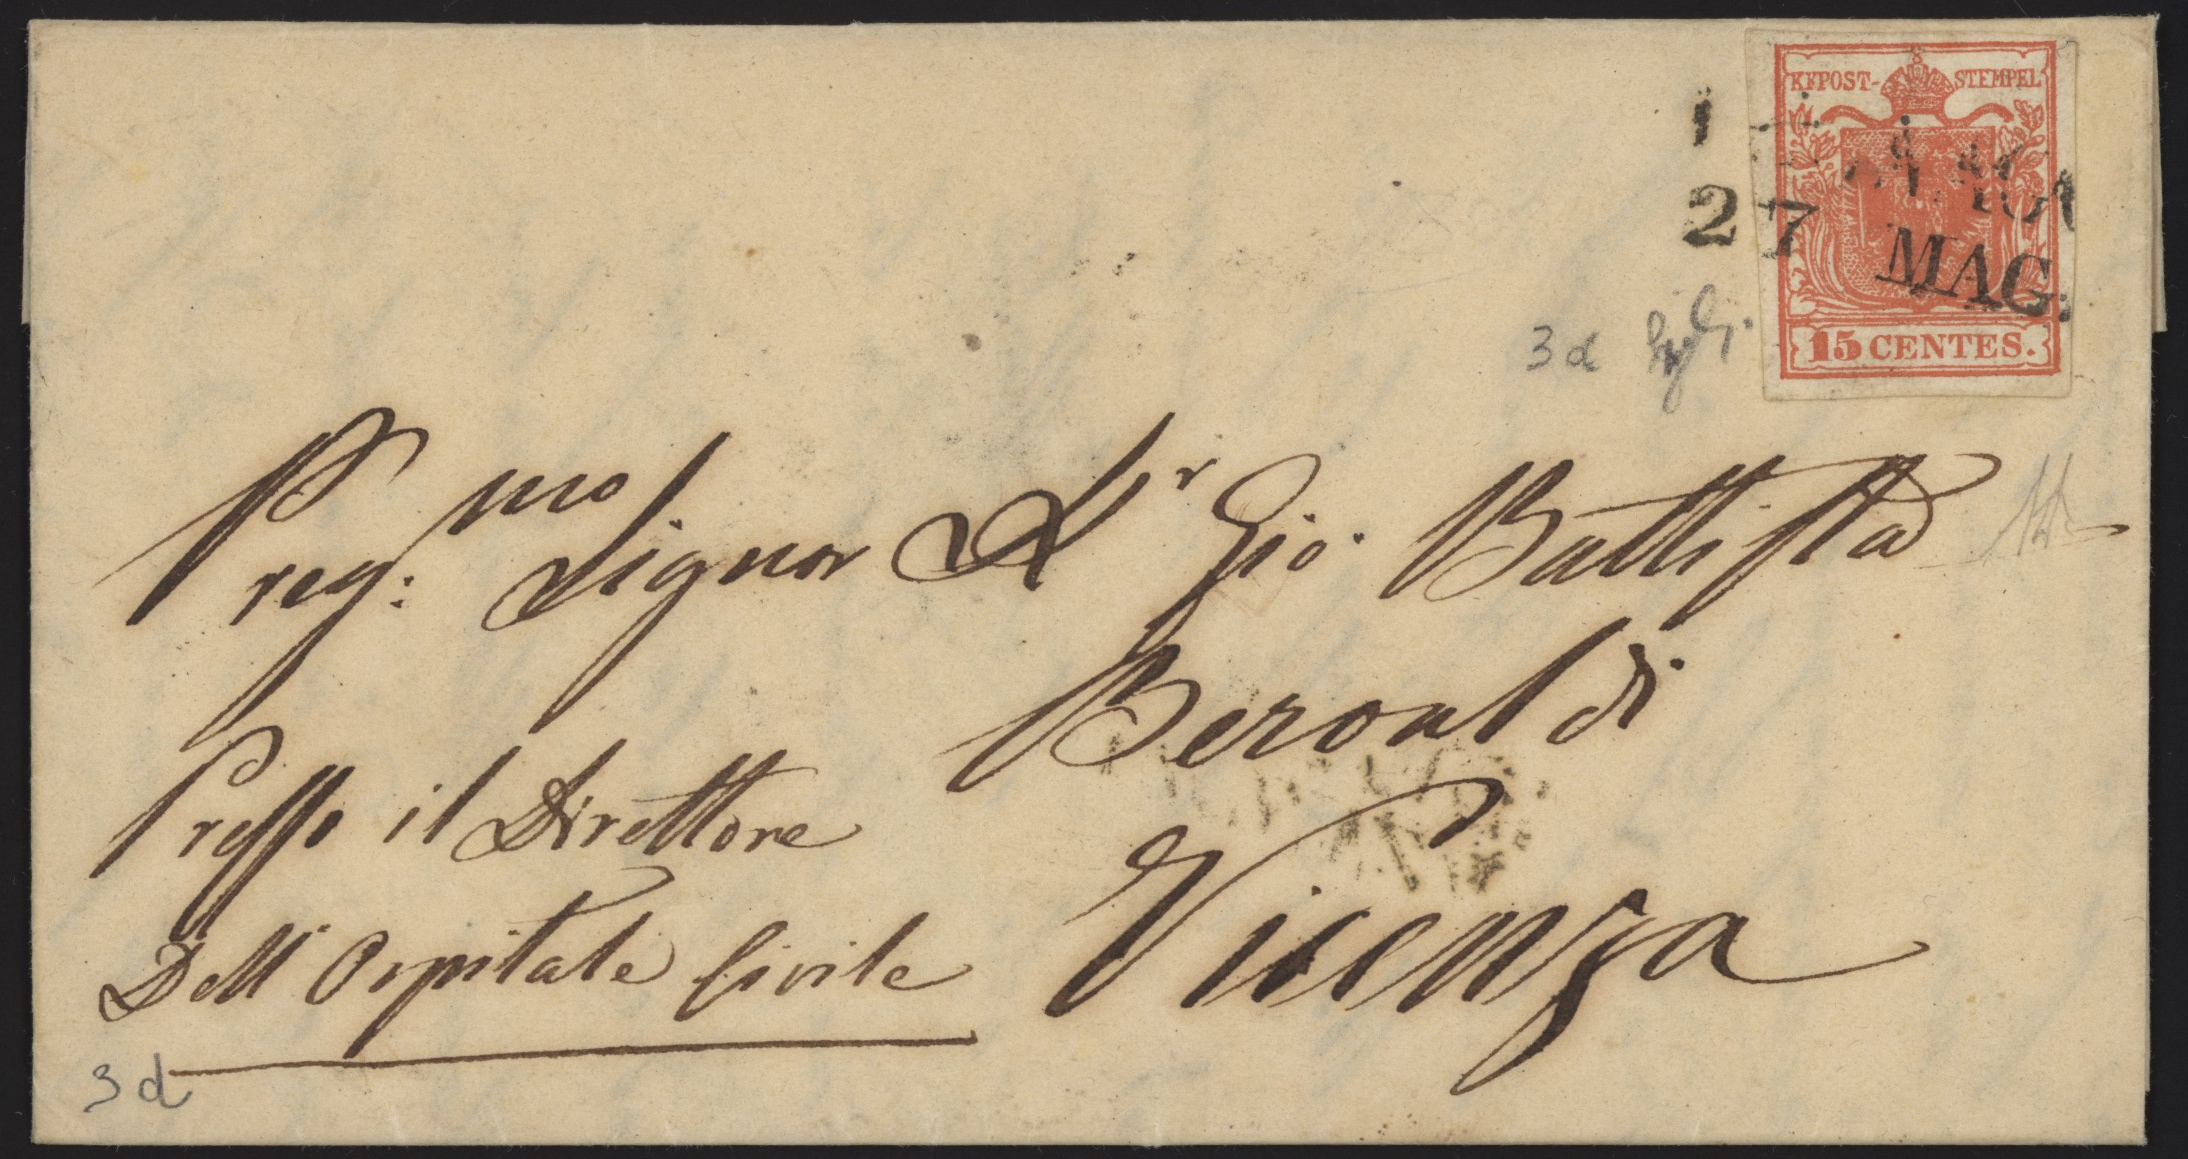 KKPOST-STEMPEL
27 MAG.
15 CENTES.
3 d
Preg:mo Signor Dr Gio. Battista
Beroaldi
Presso il Direttore
Dell' Ospitale Civile
Vicenza
3 d